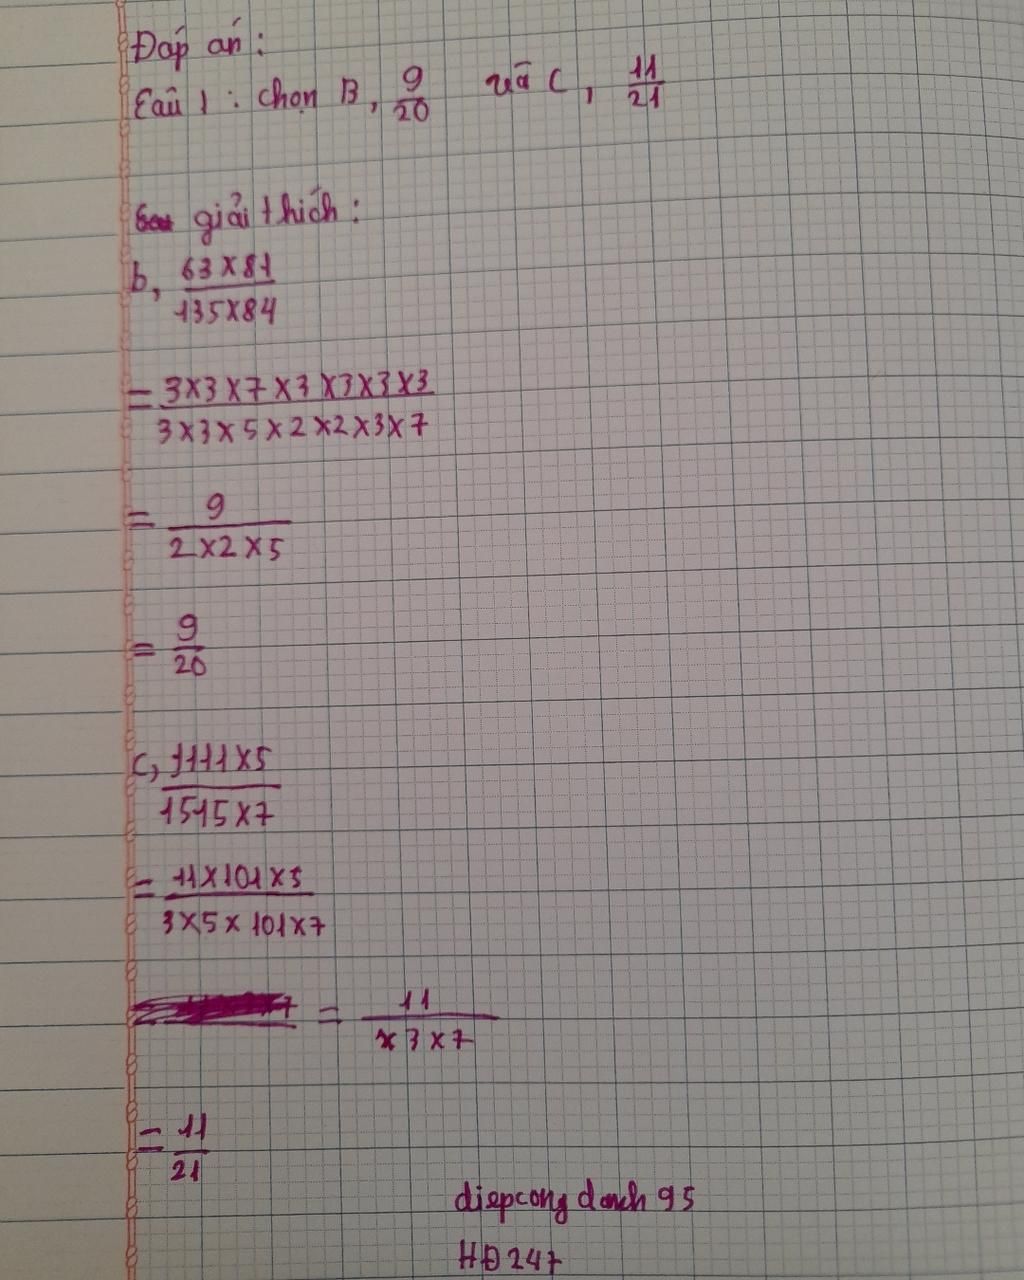 Đáp án:
Câu 1: chọn B, 9/20 và C, 11/21
giải thích:
b, 63×81
135×84
= 3×3×7×3×3×3×3
3×3×5×2×2×3×7
= 9
2×2×5
= 9
20
c, 1111×5
1515×7
= 11×101×5
3×5×101×7
= 11
×3×7
= 11
21
diepcongdanh95
HĐ247